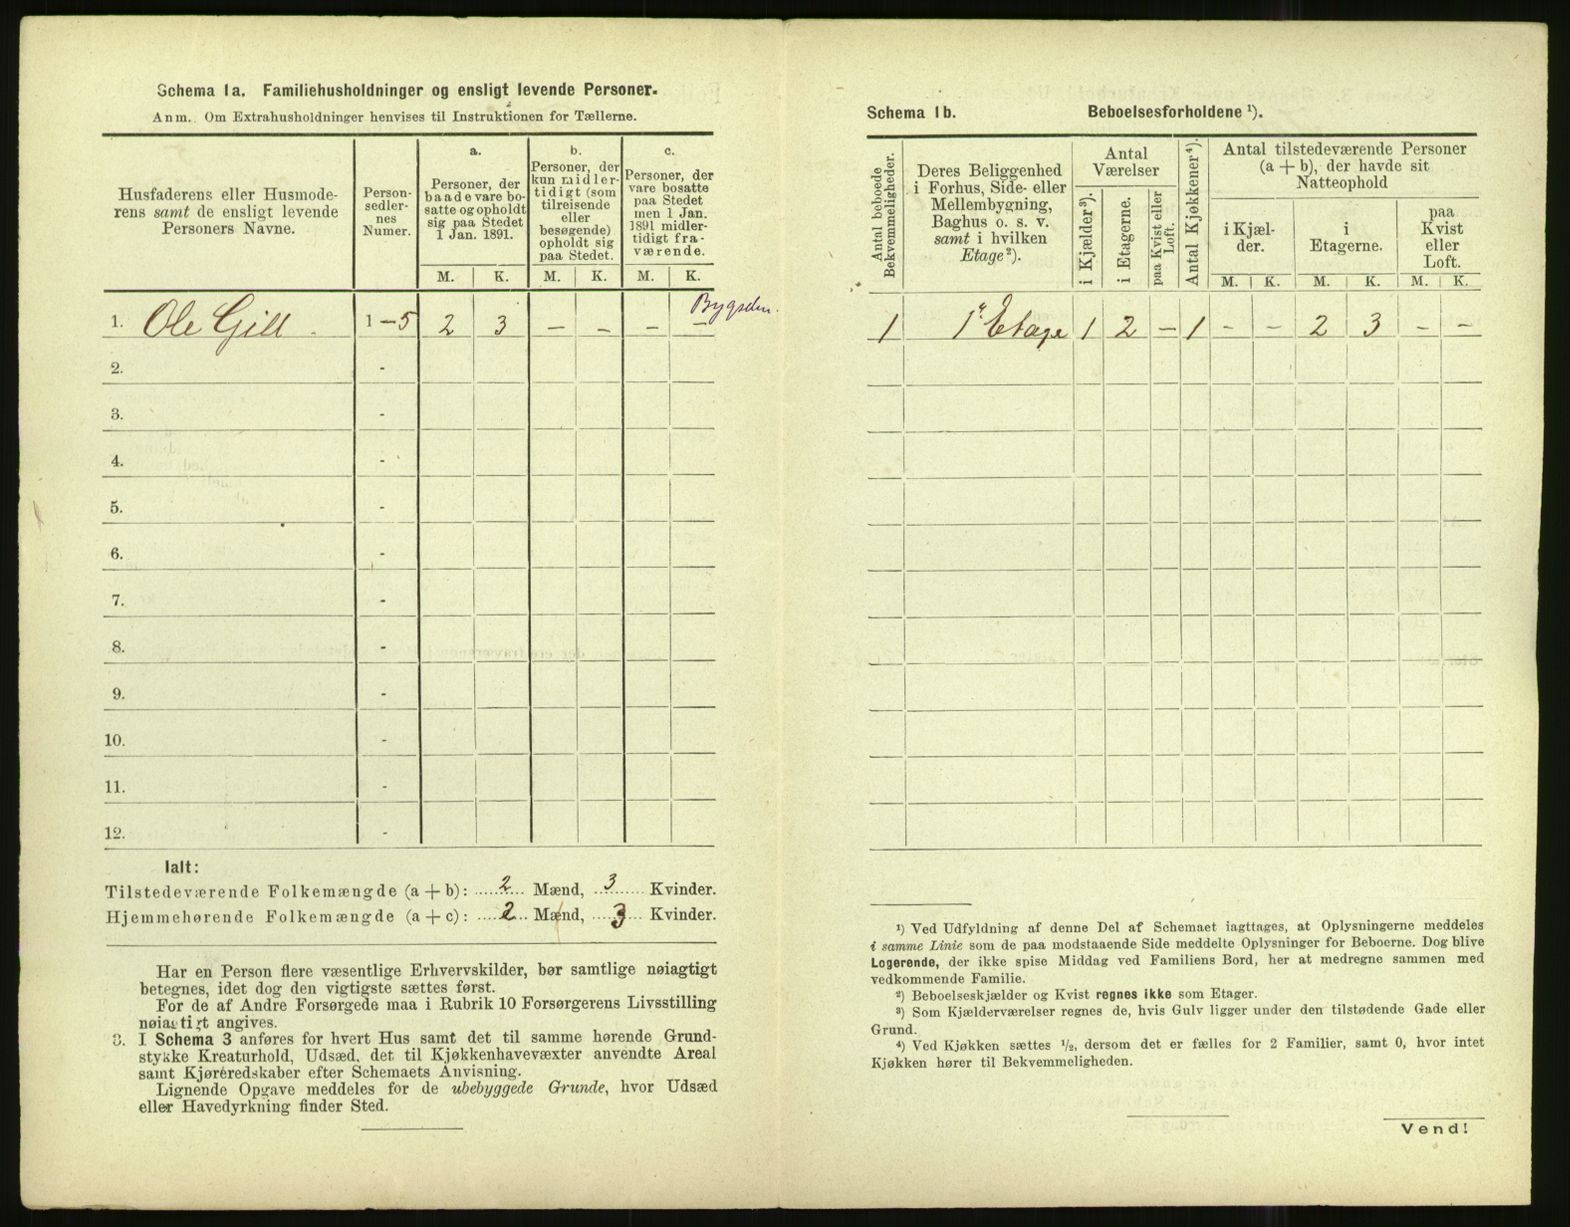 Schema 1a. Familiehusholdninger og ensligt levende Personer.
Anm. Om Extrahusholdninger henvises til Instruktionen for Tællerne.
Husfaderens eller Husmode-
rens samt de ensligt levende
Personers Navne.
Person-
sedler-
nes
Numer.
a.
Personer, der
baade vare bo-
satte og opholdt
sig paa Stedet
1 Jan. 1891.
b.
Personer, der
kun midler-
tidigt (som
tilreisende
eller
besøgende)
opholdt sig
paa Stedet.
c.
Personer, der
vare bosatte
paa Stedet
men 1 Jan.
1891 midler-
tidigt fra-
værende.
M. K. M. K. M. K.
Bygselm.
1. Ole Gill. 1-5 2 3 - - - -
2. -
3. -
4. -
5. -
6. -
7. -
8. -
9. -
10. -
11. -
12. -
Ialt:
Tilstedeværende Folkemængde (a + b): 2 Mænd, 3 Kvinder.
Hjemmehørende Folkemængde (a + c): 2 Mænd, 3 Kvinder.
Har en Person flere væsentlige Erhvervskilder, bør samtlige nøiagtigt
betegnes, idet dog den vigtigste sættes først.
For de af Andre Forsørgede maa i Rubrik 10 Forsørgerens Livsstilling
nøiagtigt angives.
3. I Schema 3 anføres for hvert Hus samt det til samme hørende Grund-
stykke Kreaturhold, Udsæd, det til Kjøkkenhavevæxter anvendte Areal
samt Kjøréredskaber efter Schemaets Anvisning.
Lignende Opgave meddeles for de ubebyggede Grunde, hvor Udsæd
eller Havedyrkning finder Sted.
Schema 1b. Beboelsesforholdene ¹).
Antal beboede
Bekvemmeligheder.
Deres Beliggenhed
i Forhus, Side- eller
Mellembygning,
Baghus o. s. v.
samt i hvilken
Etage ²).
Antal
Værelser
i Kjælder ³).
i Etagerne.
paa Kvist eller
Loft.
Antal Kjøkkener ⁴).
Antal tilstedeværende Personer
(a + b), der havde sit
Natteophold
i Kjæl-
der.
i
Etagerne.
paa
Kvist
eller
Loft.
M. K. M. K. M. K.
1 1ste Etage 1 2 - 1 - - 2 3 - -
¹) Ved Udfyldning af denne Del af Schemaet iagttages, at Oplysningerne meddeles
i samme Linie som de paa modstaaende Side meddelte Oplysninger for Beboerne. Dog blive
Logerende, der ikke spise Middag ved Familiens Bord, her at medregne sammen med
vedkommende Familie.
²) Beboelseskjælder og Kvist regnes ikke som Etager.
³) Som Kjælderværelser regnes de, hvis Gulv ligger under den tilstødende Gade eller
Grund.
⁴) Ved Kjøkken sættes ¹/₂, dersom det er fælles for 2 Familier, samt 0, hvor intet
Kjøkken hører til Bekvemmeligheden.
Vend!